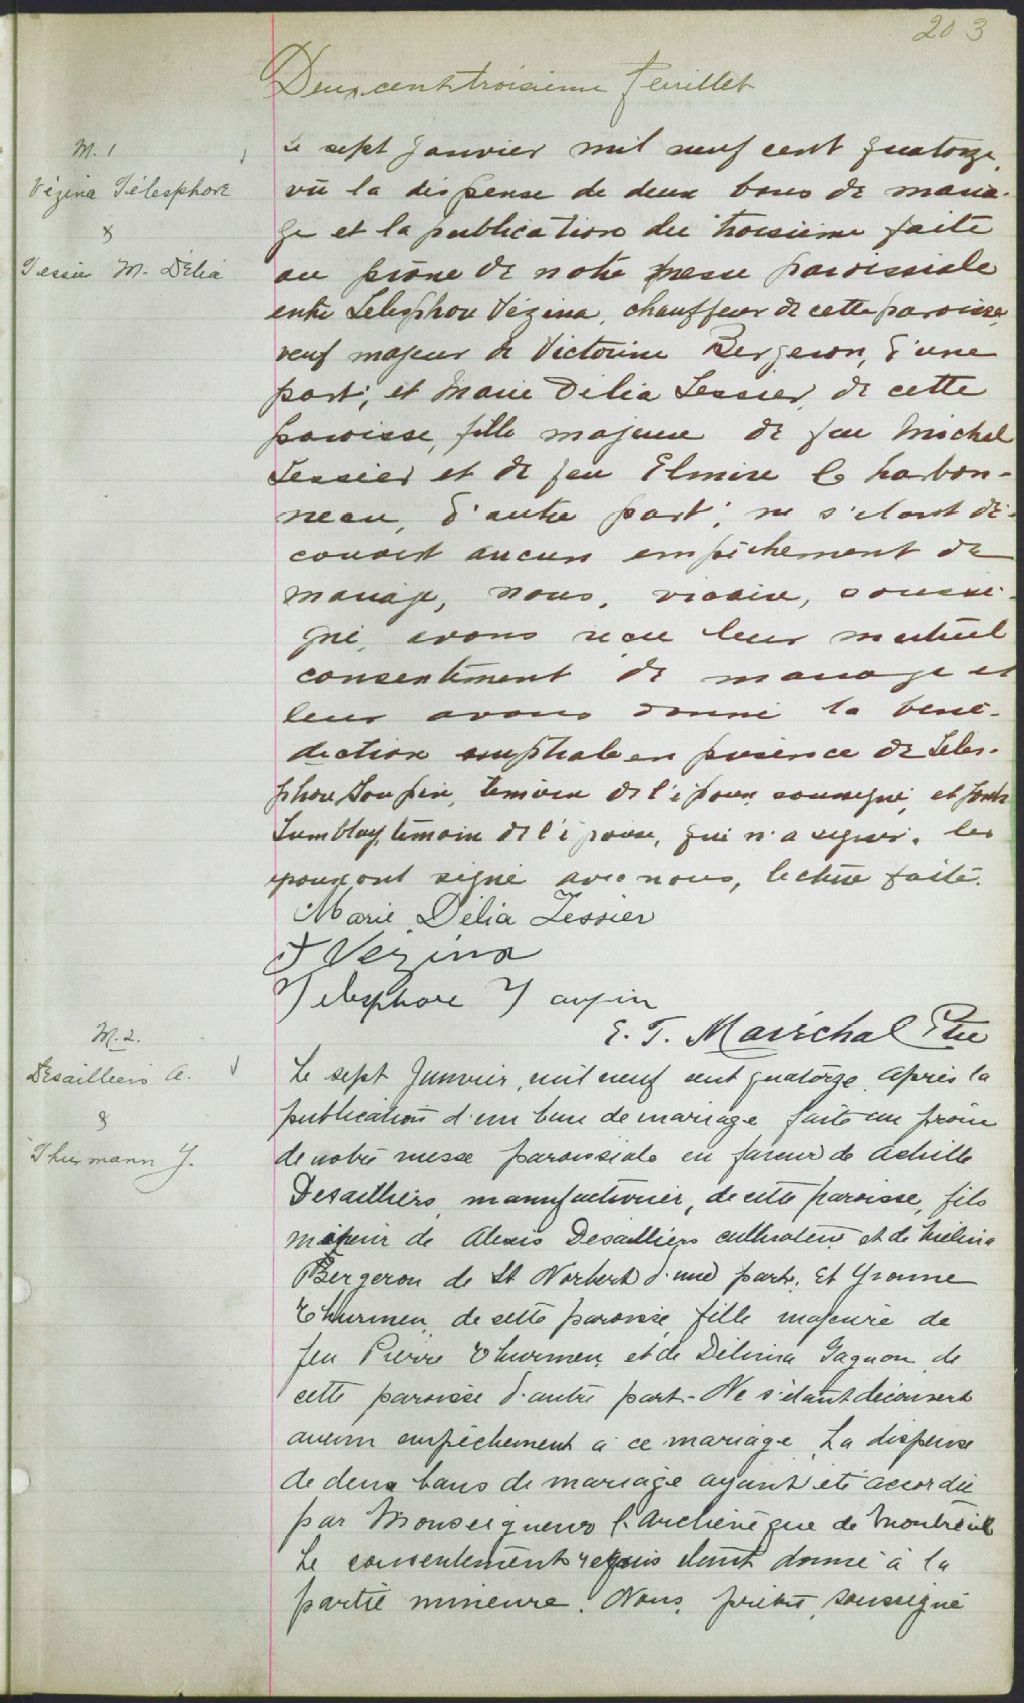 203
Deux cent troisième feuillet
M. 1
Vézina Télesphore
&
Tessier M. Délia
Le sept Janvier mil neuf cent quatorze,
vû la dispense de deux bans de maria-
ge et la publication du troisième faite
au prône de notre messe paroissiale
entre Télesphore Vézina, chauffeur de cette paroisse,
veuf majeur de Victorine Bergeron, d'une
part; et Marie Délia Tessier, de cette
paroisse, fille majeure de feu Michel
Tessier et de feu Elmire Charbon-
neau, d'autre part; ne s'étant dé-
couvert aucun empêchement de
mariage, nous, vicaire, soussi-
gné, avons reçu leur mutuel
consentement de mariage et
leur avons donné la béné-
diction nuptiale en présence de Téles-
phore Taupin, témoin de l'époux, soussigné, et
Tremblay, témoin de l'épouse, qui n'a signé. les
époux ont signé avec nous, lecture faite.
Marie Délia Tessier
T Vézina
Telesphore Taupin
E. T. Maréchal Ptre
M. 2.
Desailliers A.
&
Thurmann Y.
Le sept Janvier, mil neuf cent quatorze, après la
publication d'un ban de mariage faite au prône
de notre messe paroissiale en faveur de Achille
Desailliers, manufacturier, de cette paroisse, fils
majeur de Alexis Desailliers cultivateur et de
Bergeron de St Norbert d'une part, Et Yvonne
Thurmen, de cette paroisse, fille majeure de
feu Pierre Thurmen, et de Délima Gagnon, de
cette paroisse d'autre part. Ne s'étant découvert
aucun empêchement à ce mariage, La dispense
de deux bans de mariage ayant été accordée
par Monseigneur l'Archevêque de Montréal
Le consentement requis étant donné à la
partie mineure. Nous, prêtre, soussigné